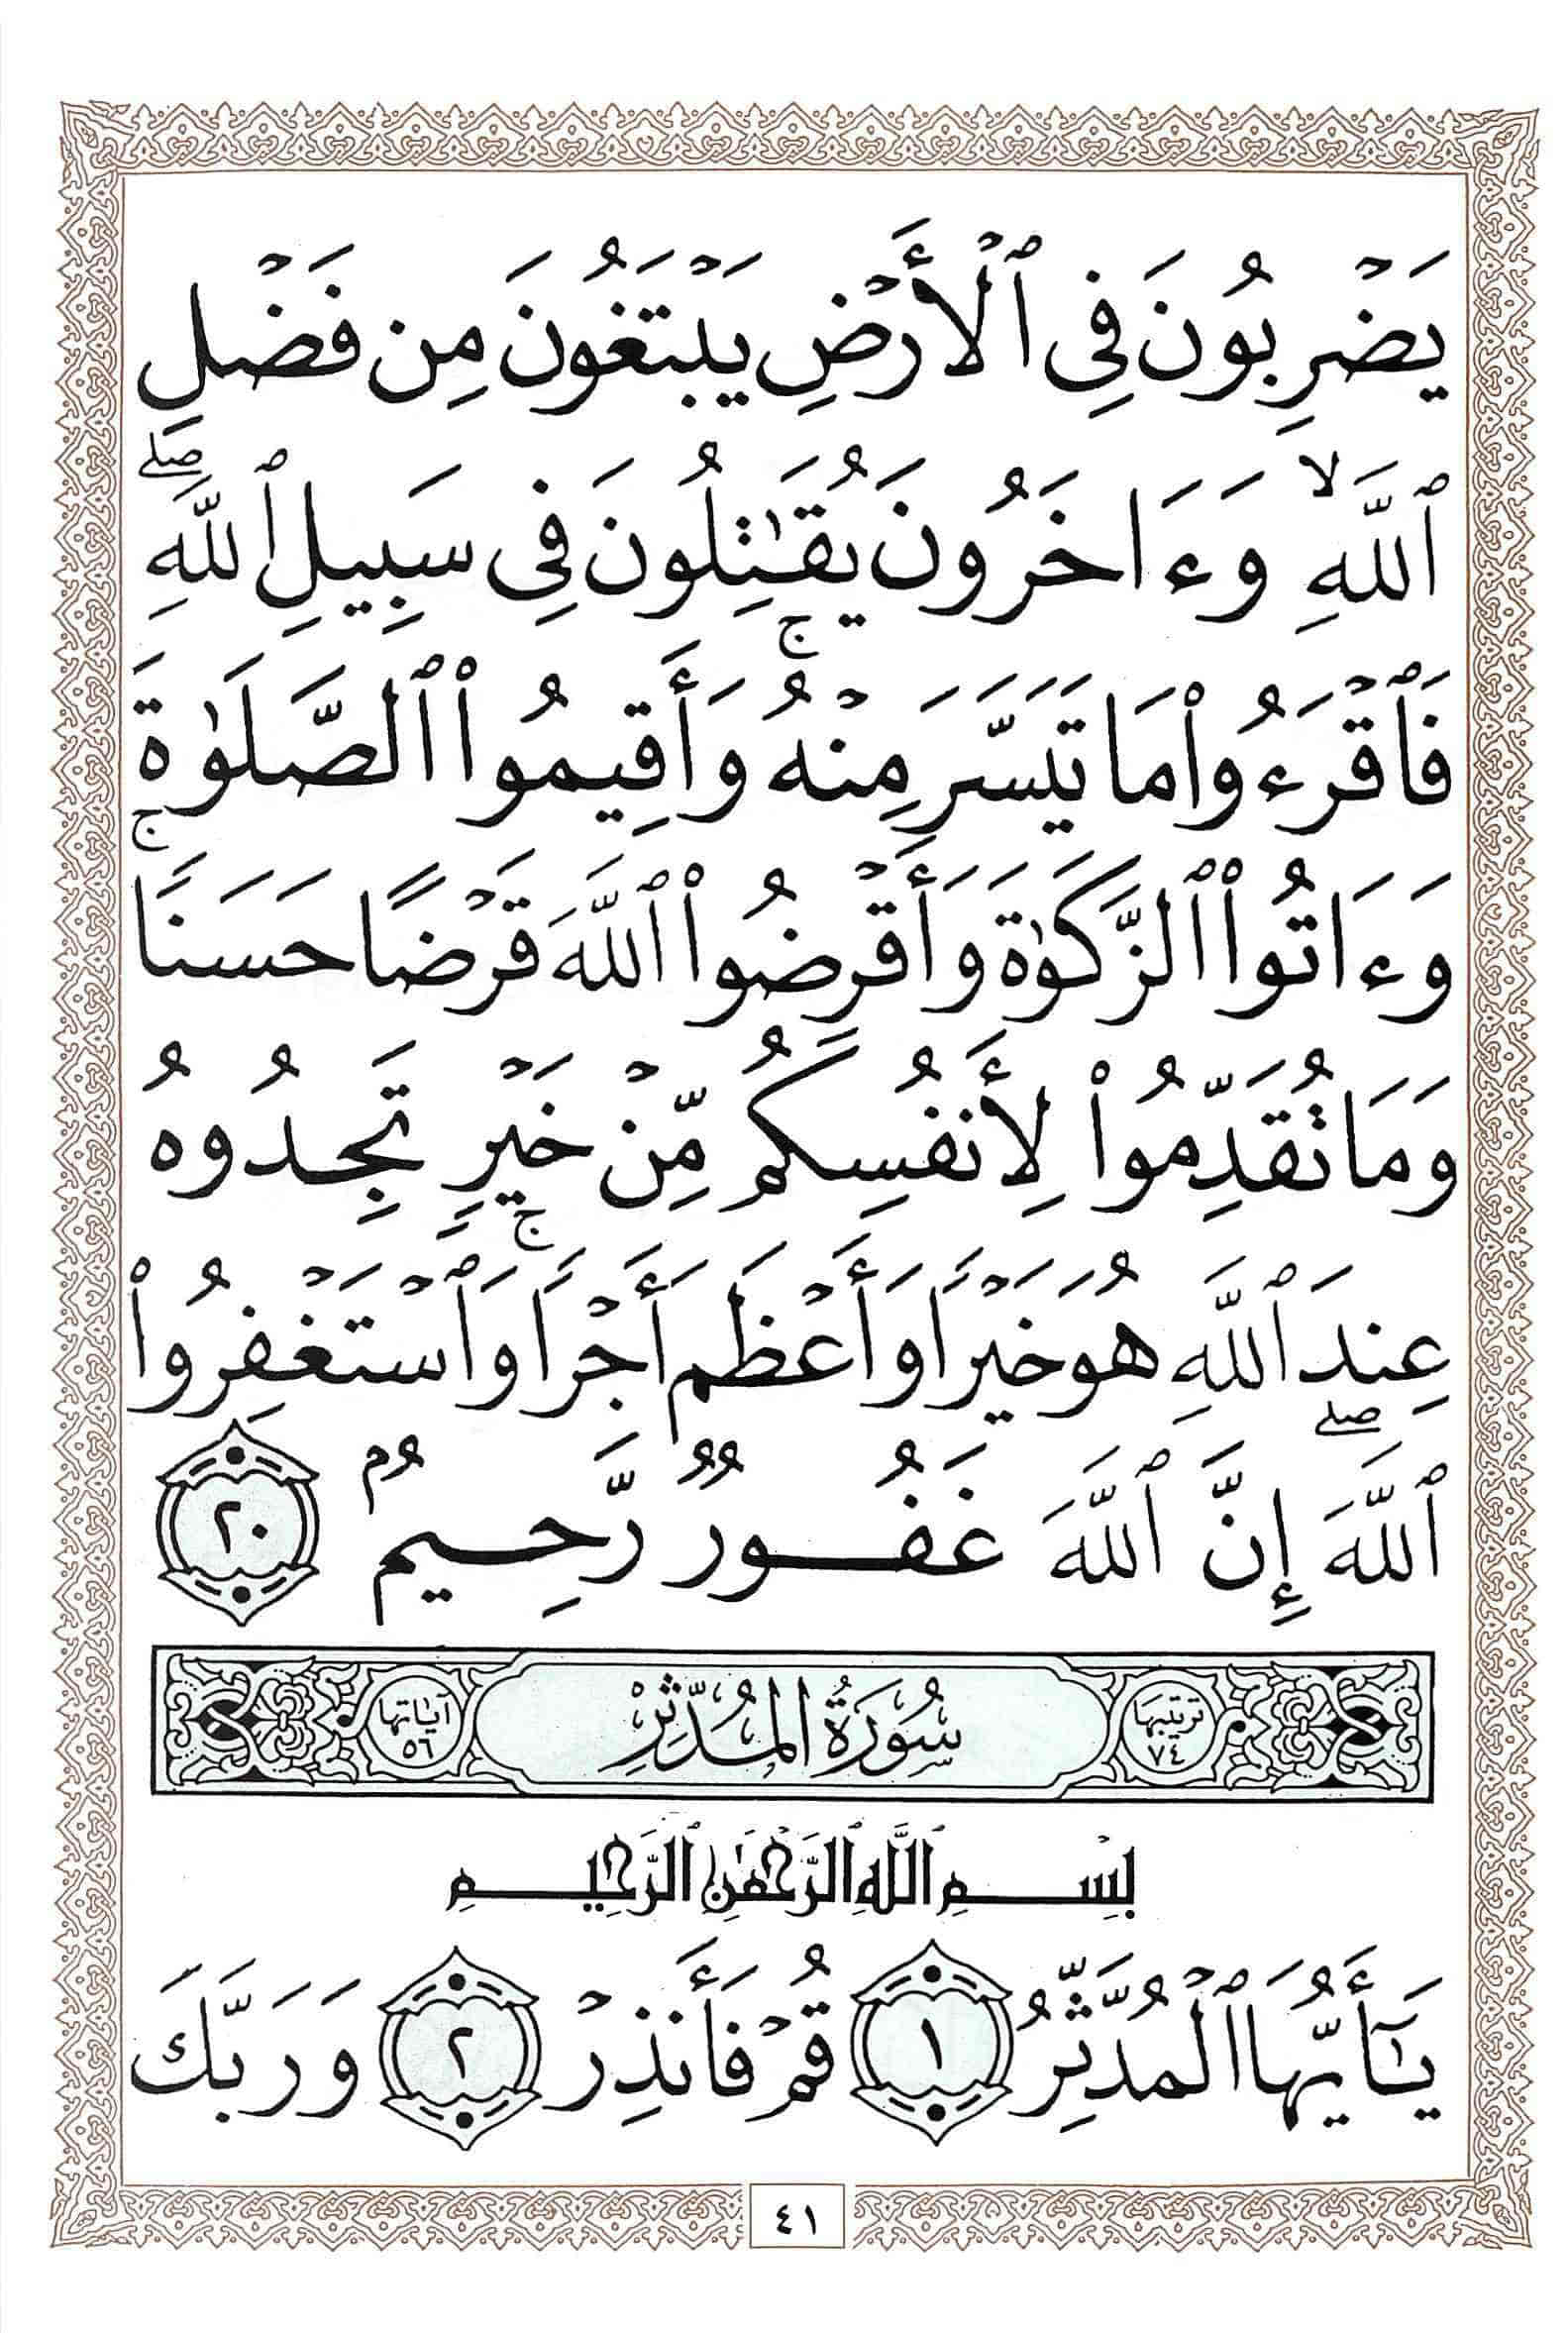 يَضۡرِبُونَ فِي ٱلۡأَرۡضِ يَبۡتَغُونَ مِن فَضۡلِ
ٱللَّهِ لا وَءَاخَرُونَ يُقَٰتِلُونَ فِي سَبِيلِ ٱللَّهِۖ
فَٱقۡرَءُواْ مَا تَيَسَّرَ مِنۡهُۚ وَأَقِيمُواْ ٱلصَّلَوٰةَ
وَءَاتُواْ ٱلزَّكَوٰةَ وَأَقۡرِضُواْ ٱللَّهَ قَرۡضًا حَسَنٗاۚ
وَمَا تُقَدِّمُواْ لِأَنفُسِكُم مِّنۡ خَيۡرٖ تَجِدُوهُ
عِندَ ٱللَّهِ هُوَ خَيۡرٗا وَأَعۡظَمَ أَجۡرٗاۚ وَٱسۡتَغۡفِرُواْ
ٱللَّهَۖ إِنَّ ٱللَّهَ غَفُورٞ رَّحِيمُۢ ٢٠
ترتيبها ٧٤ سُورَةُ المُدَّثِّرِ آياتها ٥٦
بِسۡمِ ٱللَّهِ ٱلرَّحۡمَٰنِ ٱلرَّحِيمِ
يَٰٓأَيُّهَا ٱلۡمُدَّثِّرُ ١ قُمۡ فَأَنذِرۡ ٢ وَرَبَّكَ
٤١